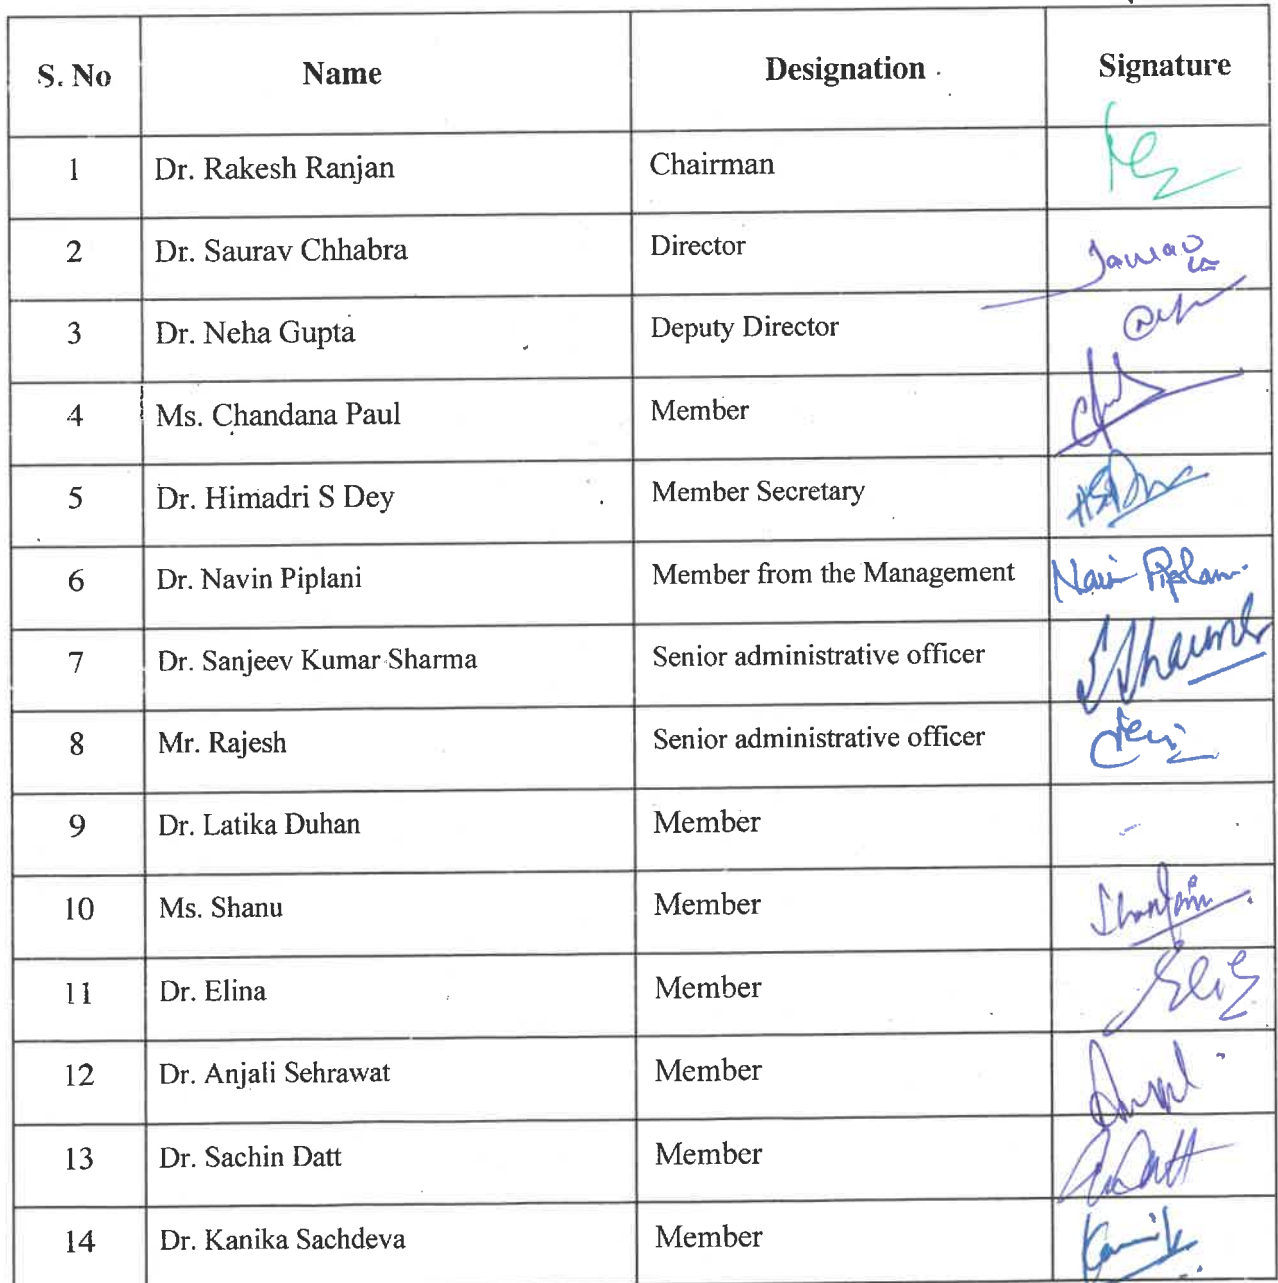 S. No Name Designation Signature
1 Dr. Rakesh Ranjan Chairman
2 Dr. Saurav Chhabra Director
3 Dr. Neha Gupta Deputy Director
4 Ms. Chandana Paul Member
5 Dr. Himadri S Dey Member Secretary
6 Dr. Navin Piplani Member from the Management Navin Piplani
7 Dr. Sanjeev Kumar Sharma Senior administrative officer
8 Mr. Rajesh Senior administrative officer
9 Dr. Latika Duhan Member
10 Ms. Shanu Member
11 Dr. Elina Member
12 Dr. Anjali Sehrawat Member
13 Dr. Sachin Datt Member
14 Dr. Kanika Sachdeva Member